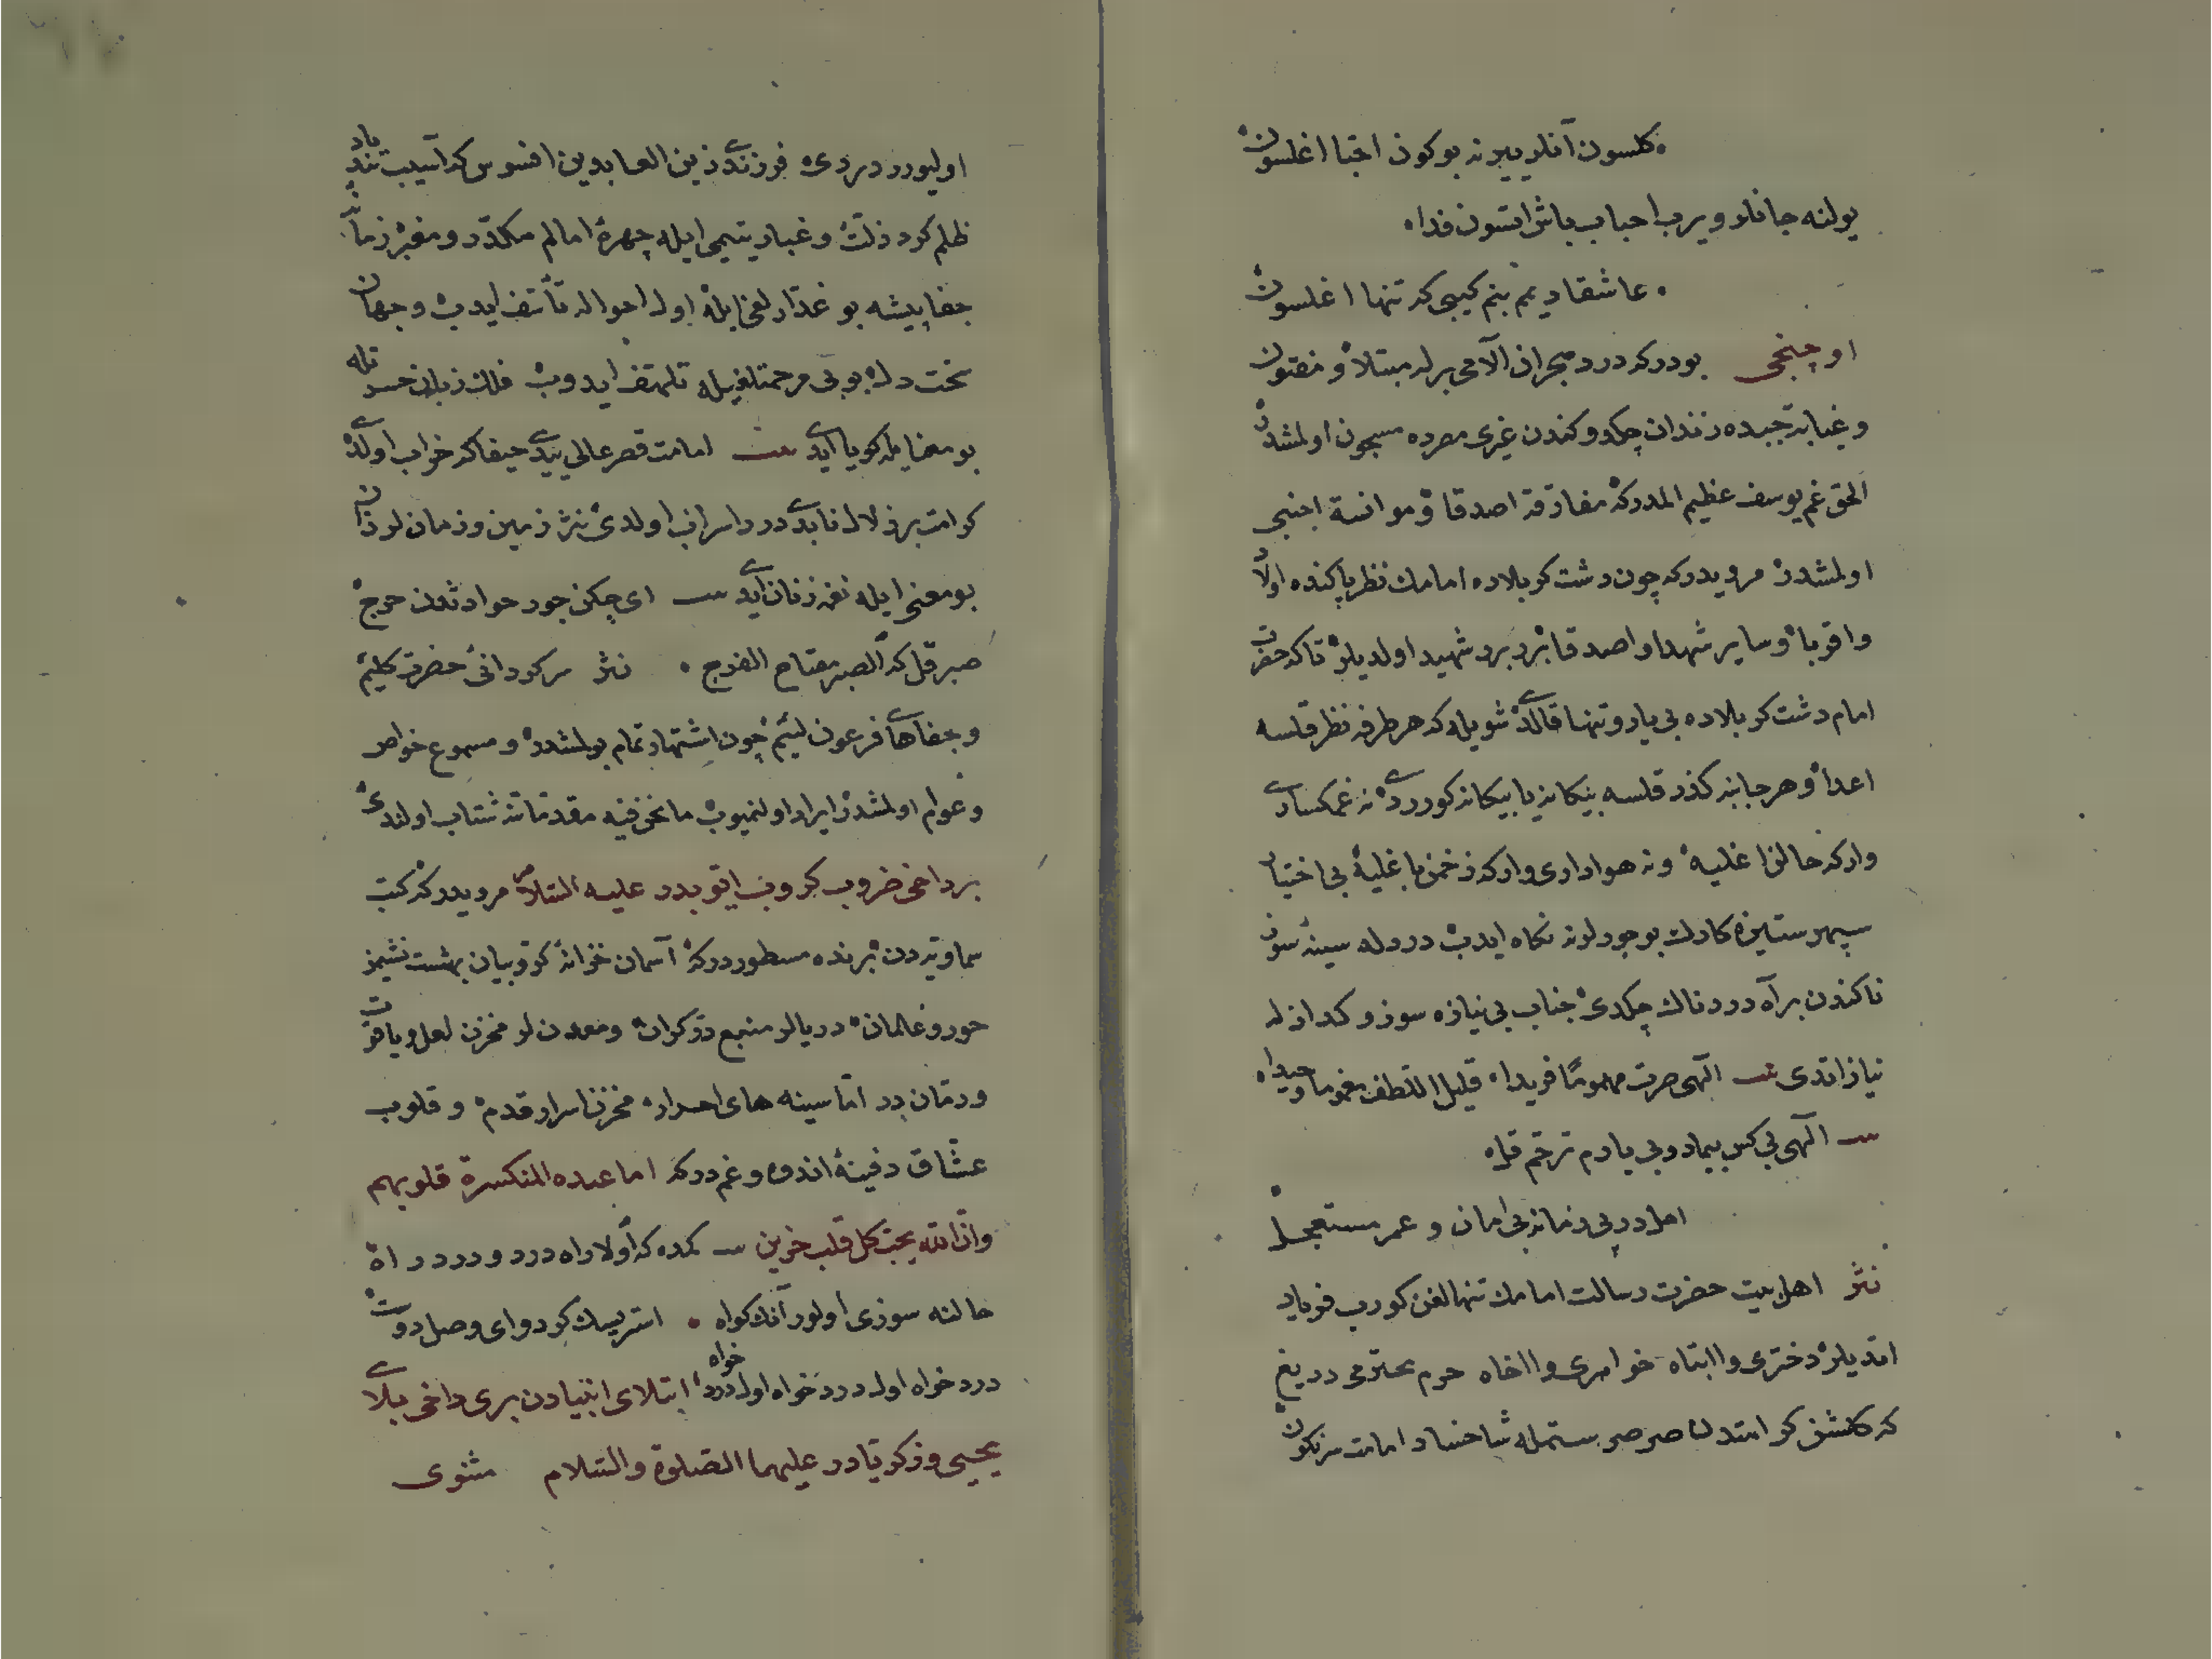 كلسون آنلر ييرنه بوكون احبا اغلسون
يولنه جانلر ويرب احباب باش ايتسون فدا
عاشقا ديم بنم كيبى كه تنها اغلسون
اوچنجى بودركه درد هجران آلامى برله مبتلا و مفتون
وغيابة جبده زندان چكدوكندن غيرى مصرده مسجون اولمشدر
الحق غم يوسف عظيم المدركه مفارقة اصدقا و موانسة اجنبى
اولمشدر مرويدركه چون دشت كربلاده امامك نظر پاكنده اولاد
واقربا وسایر شهدا و اصدقا برر برر شهيد اولديلر تاكه حضرت
امام دشت كربلاده بى يار و تنها قالدى شويله كه هر طرفه نظر قلسه
اعدا و هر جانبه كذر قلسه بيكانه يا بيكانه كوردى نه غمكسارى
واركه حالنه اغليه ونه هوادارى واركه زخمن باغليه بى اختيار
سپهر ستيزه كارك بوجورلرنه نكاه ايدب دردله سينه سوز
ناكندن بر آه دردناك چكدى جناب بى نيازه سوز و كدازله
نيازاتدى الهى صرت مهموما فريدا قليل اللطف مغموما وحيدا
الهى بى كس بيمار و بى يارم ترحم قل
اهل درد بى زمانه بى امان و عمر مستعجل
نثر اهل بيت حضرت رسالت امامك تنهالغن كورب فرياد
اتديلر دخترى وا ابتاه خواهرى وا اخاه حرم محترمى دريغ
كه كلشن كرامتدن صرصر ستمله شاخسار امامت سرنكون
اوليورر ديردى فرزندى زين العابدين افسوس كه آسيب تندباد
ظلم كرد ذلت و غبار يتيمى ايله چهرۀ امالم مكدر و مغبر زمانۀ
جفاپيشه بو غدارلغى ايله اول احواله تأسف ايدب و جهان
سخت دل بو بى مرحمتلغيله تلهف ايدوب فلك زبان حسرتله
بو معنا يله كويا ايدى امامت قصر عالى ييدى حيفا كه خراب اولدى
كرامت بر زلال نابدى درد اسراب اولدى نثر زمين و زمان لر زان
بو معنى ايله نغمه زنان ايدى اى چكن جور حوادثدن حرج
صبر قل كه الصبر مفتاح الفرج نثر سركردانئ حضرت كليم
وجفاهاى فرعون لئيم چون اشتهار تمام بولمشدر و مسموع خواص
وعوام اولمشدر ايراد اولنميوب ما نحن فيه مقدماتنه شتاب اولندى
برداخى ضروب كروب ايوبدر عليه السلام مرويدركه كتب
سماويه دن برنده مسطوردركه آسمان خزانۀ كروبيان بهشت نشيمن
حور و غلمان دريالر منبع در كران و معدن لر مخزن لعل و ياقوت
ورمان در اما سينه هاى احرار مخزن اسرار قدم و قلوب
عشاق دفينۀ اندوه و غم دركه اما عنده المنكسرة قلوبهم
وان الله يحب كل قلب حزين كمده كه اولا راه درد و درد راه
حالنه سوزى اولور آنك كواه استرسك كر دواى وصل دوست
درد خواه اول درد خواه اول درد خواه ابتلاى انبيادن برى داخى بلاى
يحيى و زكريادر عليهما الصلوة والسلام مثنوى